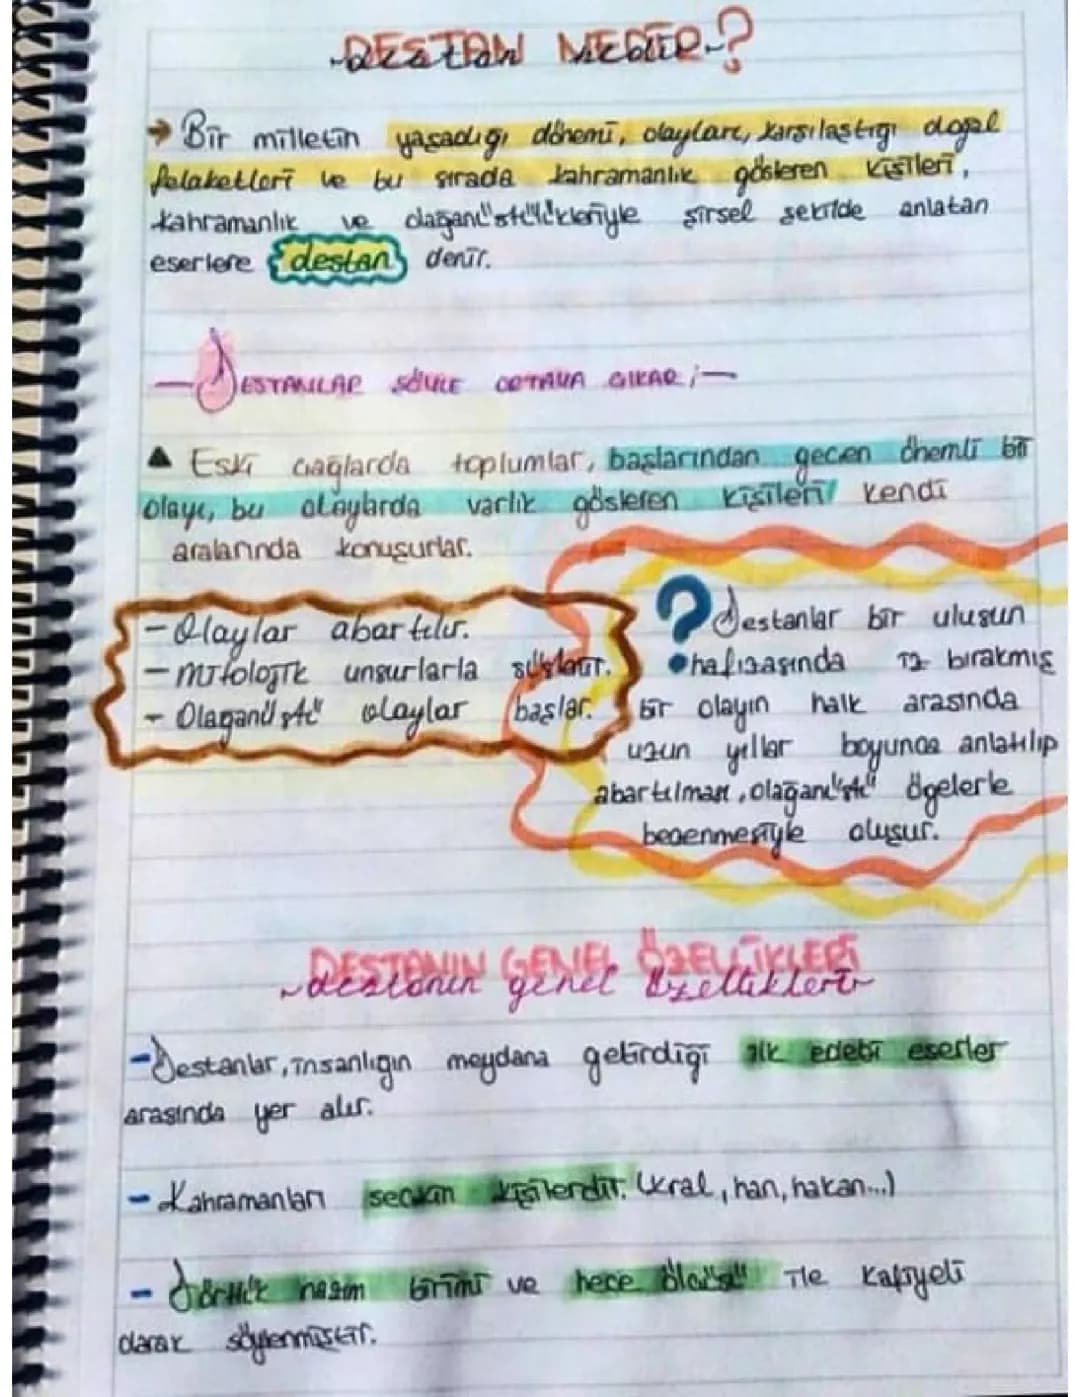 DESTAN NEDİR?
destan nedir
→ Bir milletin yaşadığı dönemi, olayları, karşılaştığı doğal
felaketleri ve bu sırada kahramanlık gösteren kişileri,
kahramanlık ve olağanüstülükleriyle şiirsel şekilde anlatan
eserlere destan denir.
DESTANLAR ŞÖYLE ORTAYA ÇIKAR;
▲ Eski çağlarda toplumlar, başlarından geçen önemli bir
olayı, bu olaylarda varlık gösteren kişileri kendi
aralarında konuşurlar.
- Olaylar abartılır.
- Mitolojik unsurlarla süslenir.
- Olağanüstü olaylar başlar.
? Destanlar bir ulusun
hafızasında iz bırakmış
bir olayın halk arasında
uzun yıllar boyunca anlatılıp
abartılması, olağanüstü ögelerle
bezenmesiyle oluşur.
DESTANIN GENEL ÖZELLİKLERİ
destanın genel özellikleri
- Destanlar, insanlığın meydana getirdiği ilk edebi eserler
arasında yer alır.
- Kahramanları seçkin kişilerdir. (kral, han, hakan...)
- Dörtlük nazım birimi ve hece ölçüsü ile kafiyeli
olarak söylenmiştir.